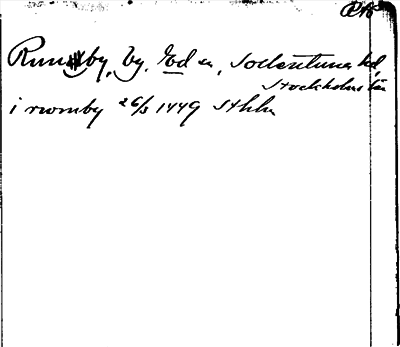 Runby, by, Ed sn, Sollentuna hd,
Stockholms län
i rwmby 26/3 1449 Sthlm